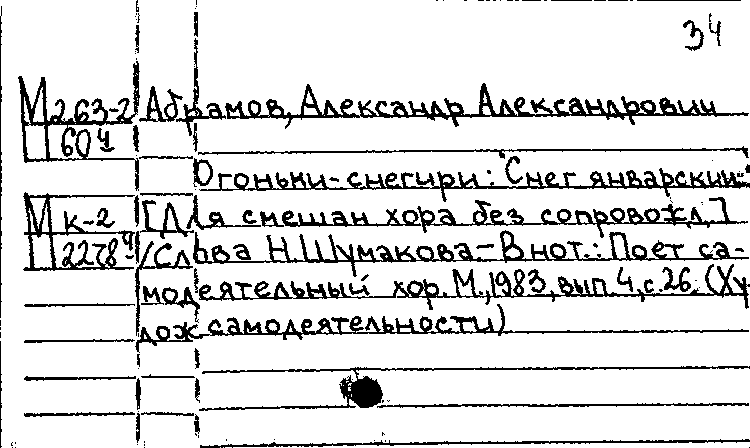 34
М 2.63-2 Абрамов, Александр Александрович
П 604
Огоньки-снегири: "Снег январский..."
М к-2 [Для смешан хора без сопровожд.]
П 22784 /Слова Н. Шумакова.- В нот.: Поет са-
модеятельный хор. М., 1983, вып. 4, с. 26. (Ху-
дож самодеятельности)